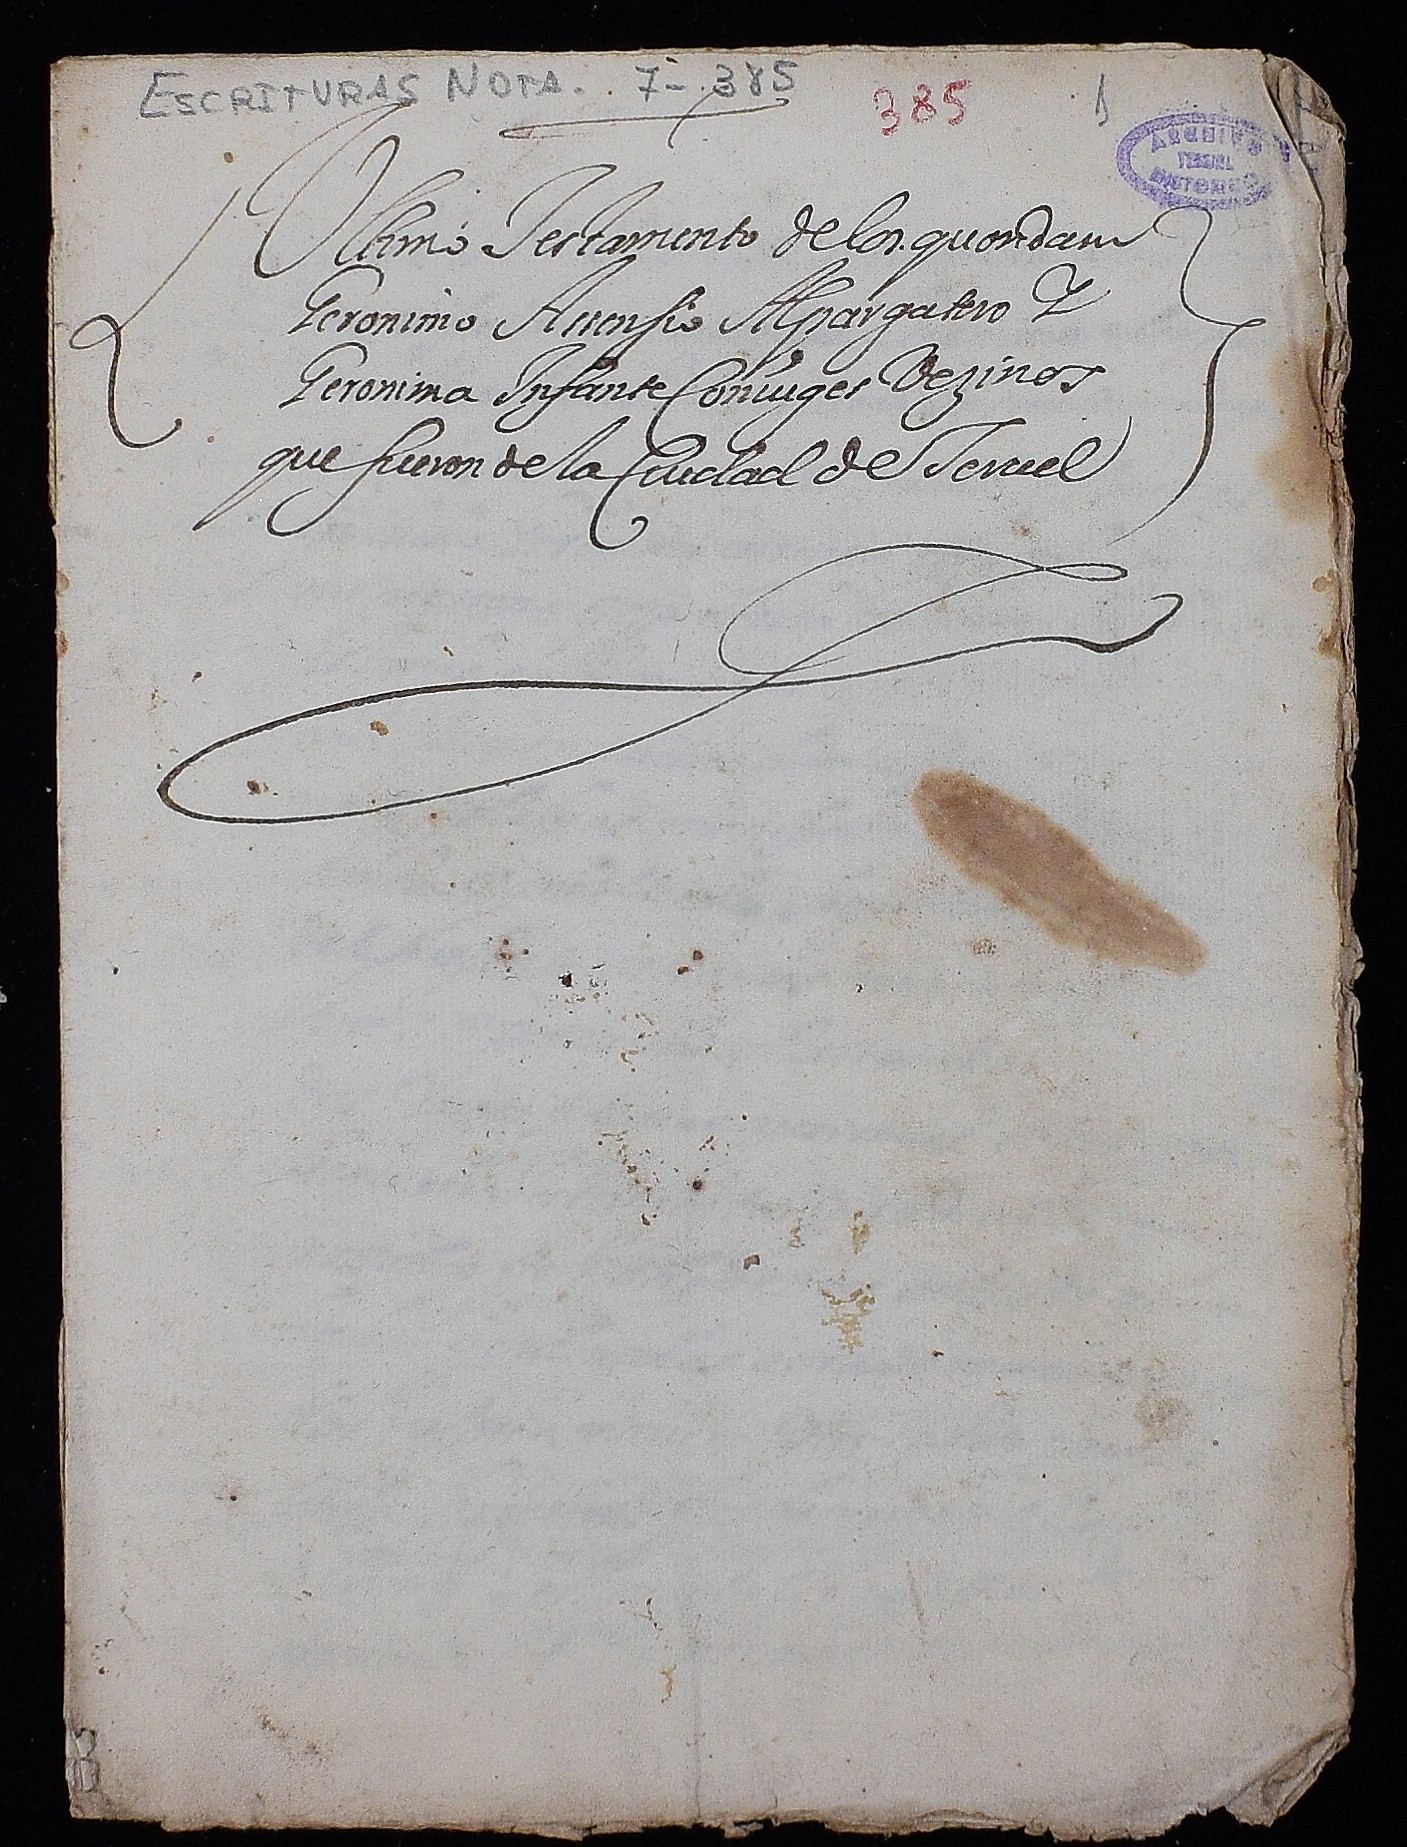 ESCRITURAS NOTA. 7-385
385
1
ARCHIVO
TERUEL
HISTORICO
Ultimo Testamento de los quondam
Geronimo Assensio Alpargatero Y
Geronima Infante Coniuges Vezinos
que fueron de la Ciudad de Teruel